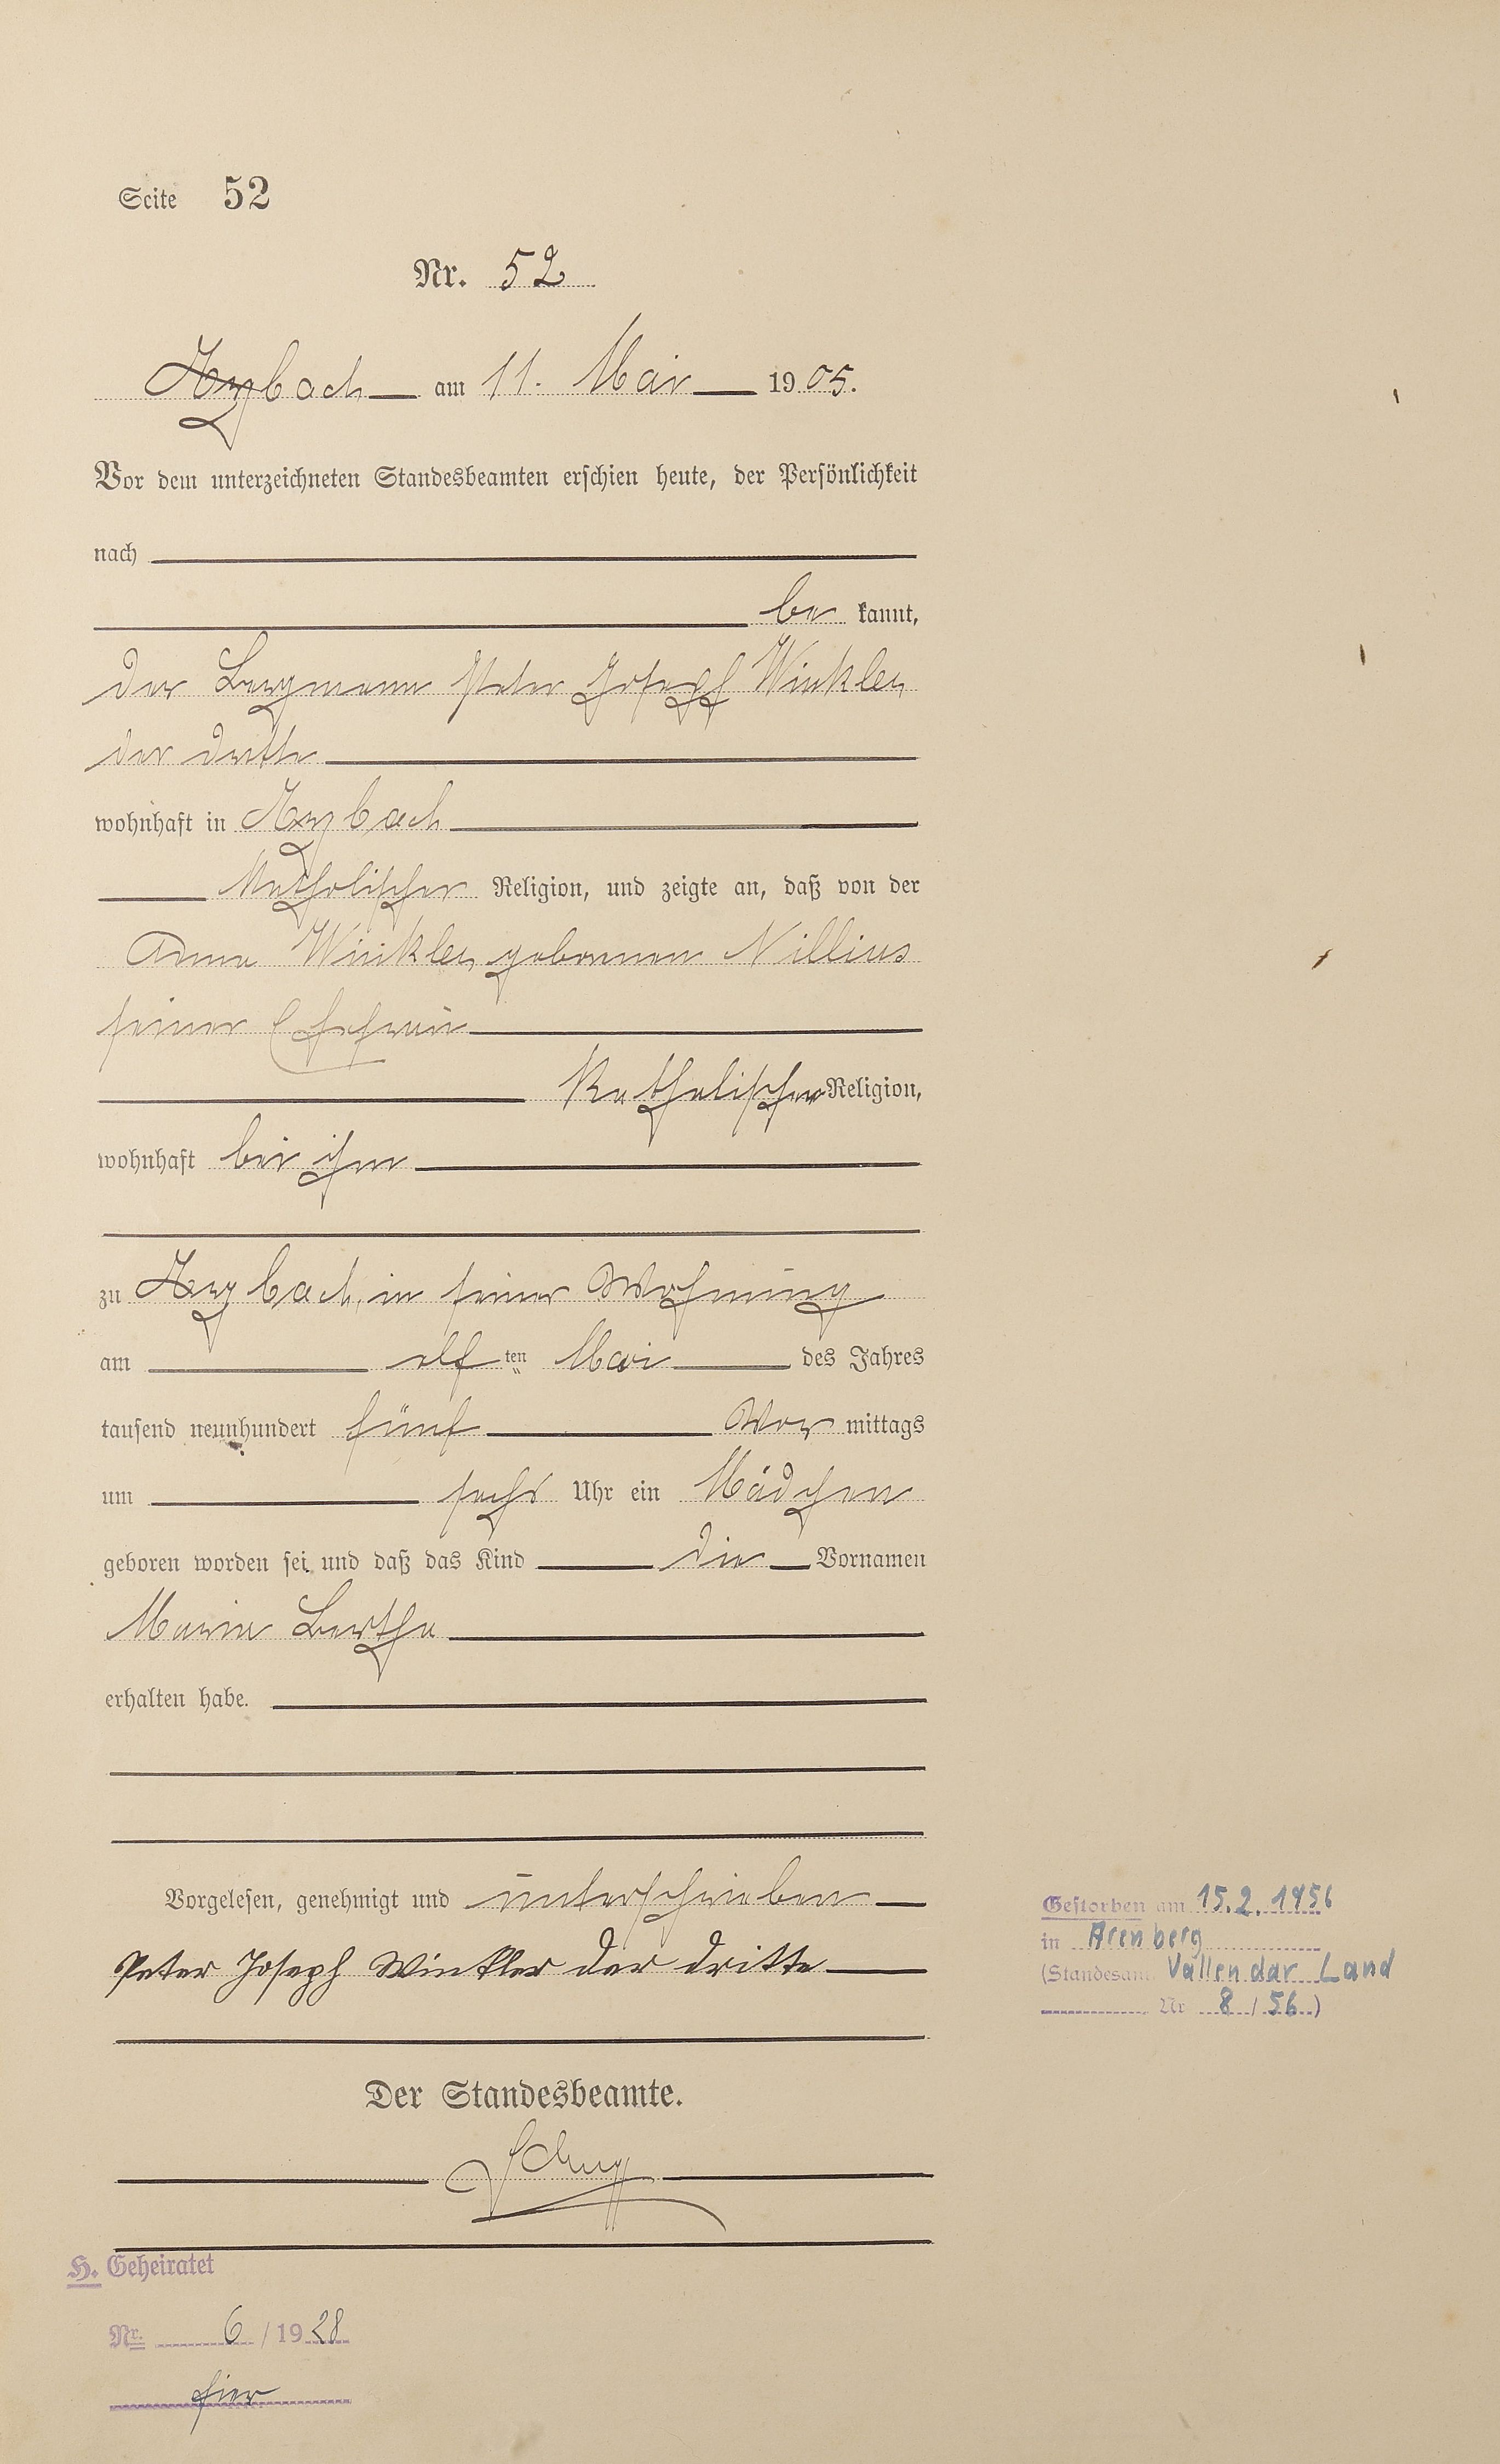 Seite 52
Nr. 52
Arzbach am 11. Mai 1905.
Vor dem unterzeichneten Standesbeamten erschien heute, der Persönlichkeit
nach
be kannt,
der Bergmann Peter Joseph Winkler
der dritte
wohnhaft in Arzbach
katholischer Religion, und zeigte an, daß von der
Anna Winkler geborenen Nillius
seiner Ehefrau
katholischer Religion,
wohnhaft bei ihm
zu Arzbach, in seiner Wohnung
am elf ten Mai des Jahres
tausend neunhundert fünf Vor mittags
um sechs Uhr ein Mädchen
geboren worden sei und daß das Kind die Vornamen
Maria Bertha
erhalten habe.
Vorgelesen, genehmigt und unterschrieben
Peter Joseph Winkler der dritte
Der Standesbeamte.
H. Geheiratet
Nr. 6 / 1928
hier
Gestorben am 15.2.1956
in Arenberg
(Standesamt Vallendar Land
Nr 8 / 56)